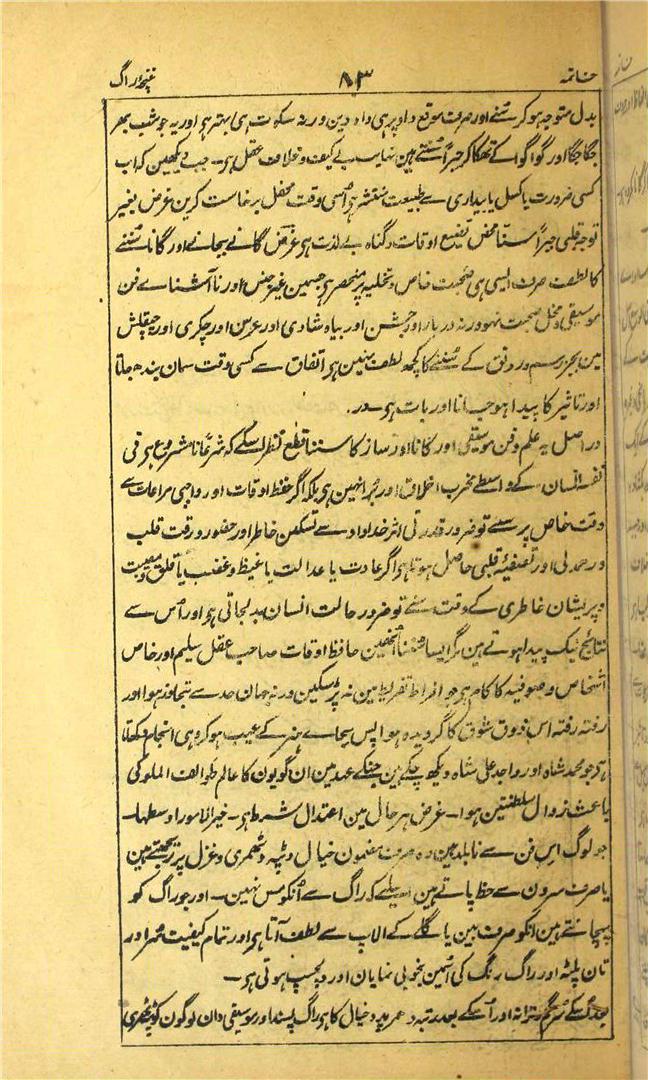 خاتمہ ۸۳ غنچۂ راگ
بدل متوجہ ہوکر سُنے اور صرف موقع داد پر ہی داد دین ورنہ سکوت ہی بہتر ہو اور یہ جو شب بھر
جگا جگا اور گوا گوا کے تھکا کر جبراً سُنتے ہین نہایت بے کیف و خلاف عقل ہو۔ جب دیکھین کہ اب
کسی ضرورت یا کسل یا بیداری سے طبیعت منتشر ہو اُسی وقت محفل برخاست کرین غرض بغیر
توجہ قلبی جبراً سننا محض تضیع اوقات و گناہ بے لذت ہو غرض گانے بجانے اور گانا سُننے
کا لطف صرف ایسی ہی صحبت خاص و تخلیہ پر منحصر ہو جسمین غیر جنس اور نا آشناے فن
موسیقی و مخل صحبت نہو ورنہ دربار اور جشن اور بیاہ شادی اور عرس اور چکری اور چپقلش
مین بجز رسم و رونق کے سُننے کا کچھ لطف نہین ہو اتفاق سے کسی وقت سمان بندھ جانا
اور تاثیر کا پیدا ہو جانا اور بات ہو۔
در اصل یہ علم و فن موسیقی اور گانا اور ساز کا سننا قطع نظر اسکے کہ شرعاً نامشروع ہو فی
نفسہ انسان کے واسطے مخرب اخلاق اور بُرا نہین ہو بلکہ اگر حفظ اوقات اور واجبی مراعات سے
وقت خاص پر سنے تو ضرور قدرتی اثر خداداد سے تسکین خاطر اور حضور و رقت قلب
و رحمدلی اور تصفیۂ قلبی حاصل ہوتا ہو اگر عادت یا عدالت یا غیظ و غضب یا قلق و مصیبت
و پریشان خاطری کے وقت سنے تو ضرور حالت انسان بدلجاتی ہو اور اُس سے
نتائج نیک پیدا ہوتے ہین مگر ایسا سُننا اُنھین حافظ اوقات صاحب عقل سلیم اور خاص
اشخاص و صوفیہ کا کام ہو جو افراط تفریط مین نہ پڑسکین ورنہ جہان حد سے تجاوز ہوا اور
رفتہ رفتہ اس ذوق شوق کا گرویدہ ہوا پس بجاے ہنر کے عیب ہوکر وہی انجام دکھتا
ہو جو محمد شاہ اور واجد علی شاہ دیکھ چکے ہین جنکے عہد مین ان گویون کا عالم طوائف الملوکی
باعث زوال سلطنتین ہوا۔ غرض ہر حال مین اعتدال شرط ہو۔ خیر الامور اوسطہا۔
جو لوگ اس فن سے نابلد ہین وہ صرف مضمون خیال و ٹپہ و ٹھمری و غزل پر ریجھتے ہین
یا صرف سرون سے حظ پاتے ہین اسلیے کہ راگ سے اُنکو مس نہین۔ اور جو راگ کو
پہچانتے ہین انکو صرف بین یا گلے کے الاپ سے لطف آتا ہو اور تمام کیفیت سُر اور
تان پلٹہ اور راگ رنگ کی اُسمین بخوبی نمایان اور دلچسپ ہوتی ہو۔
بعد اُسکے سرگم ترانہ اور اُسکے بعد رتبہ دھرپد و خیال کا ہو راگ پسند اور موسیقی دان لوگون کو ٹھمری